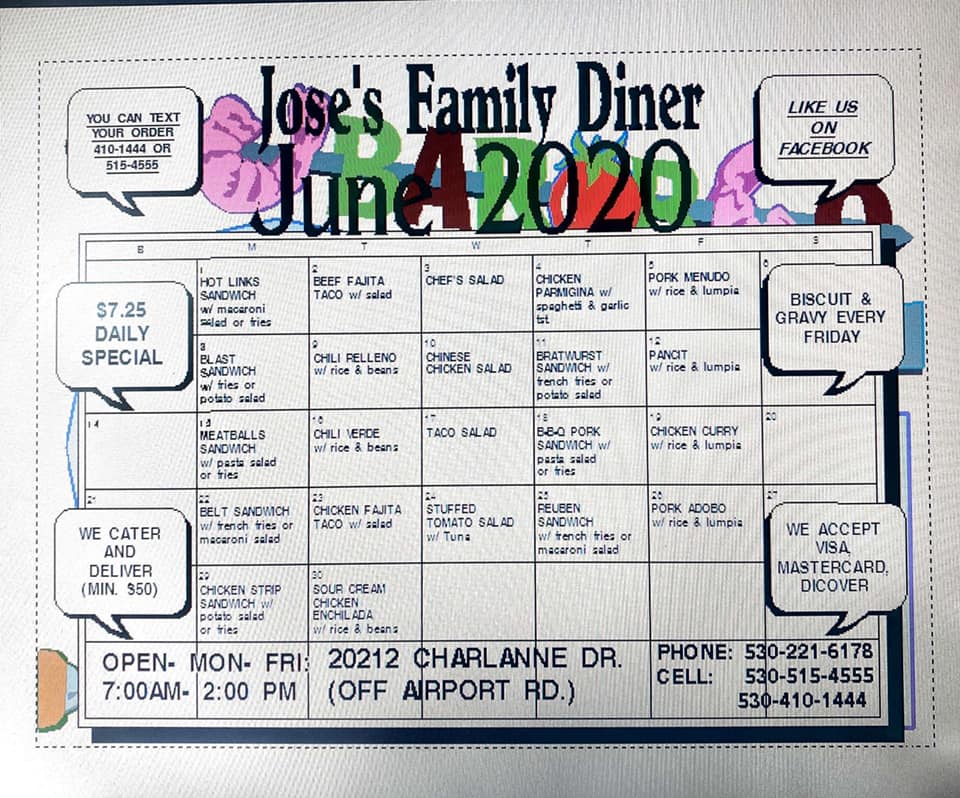 Jose's Family Diner
June 2020
YOU CAN TEXT
YOUR ORDER
410-1444 OR
515-4555
LIKE US
ON
FACEBOOK
S M T W T F S
1
HOT LINKS
SANDWICH
w/ macaroni
salad or fries
2
BEEF FAJITA
TACO w/ salad
3
CHEF'S SALAD
4
CHICKEN
PARMIGINA w/
spaghetti & garlic
tst
5
PORK MENUDO
w/ rice & lumpia
6
BISCUIT &
GRAVY EVERY
FRIDAY
$7.25
DAILY
SPECIAL
8
BLAST
SANDWICH
w/ fries or
potato salad
9
CHILI RELLENO
w/ rice & beans
10
CHINESE
CHICKEN SALAD
11
BRATWURST
SANDWICH w/
french fries or
potato salad
12
PANCIT
w/ rice & lumpia
14
15
MEATBALLS
SANDWICH
w/ pasta salad
or fries
16
CHILI VERDE
w/ rice & beans
17
TACO SALAD
18
B-B-Q PORK
SANDWICH w/
pasta salad
or fries
19
CHICKEN CURRY
w/ rice & lumpia
20
21
22
BELT SANDWICH
w/ french fries or
macaroni salad
23
CHICKEN FAJITA
TACO w/ salad
24
STUFFED
TOMATO SALAD
w/ Tuna
25
REUBEN
SANDWICH
w/ french fries or
macaroni salad
26
PORK ADOBO
w/ rice & lumpia
27
WE CATER
AND
DELIVER
(MIN. $50)
WE ACCEPT
VISA,
MASTERCARD,
DICOVER
29
CHICKEN STRIP
SANDWICH w/
potato salad
or fries
30
SOUR CREAM
CHICKEN
ENCHILADA
w/ rice & beans
OPEN- MON- FRI:
7:00AM- 2:00 PM
20212 CHARLANNE DR.
(OFF AIRPORT RD.)
PHONE: 530-221-6178
CELL: 530-515-4555
530-410-1444